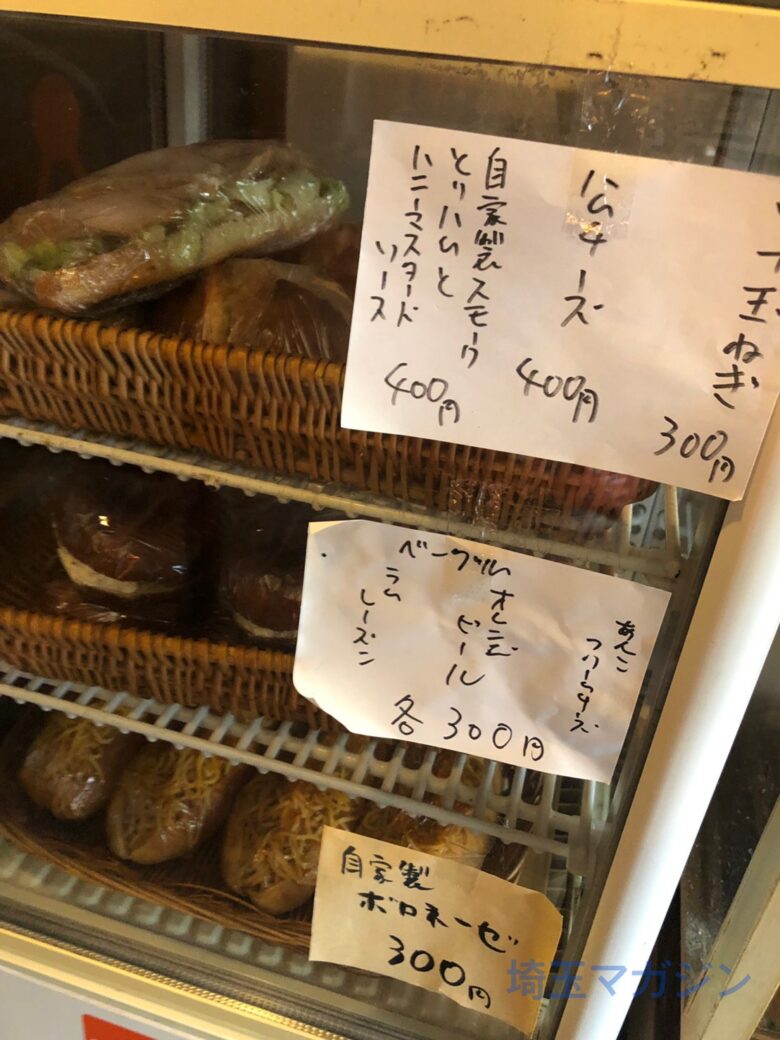 玉ねぎ
300円
ハムチーズ
400円
自家製スモーク
とりハムと
ハニーマスタード
ソース
400円
ベーグル
あんこ
クリームチーズ
オレンジ
ピール
ラム
レーズン
各300円
自家製
ボロネーゼ
300円
埼玉マガジン